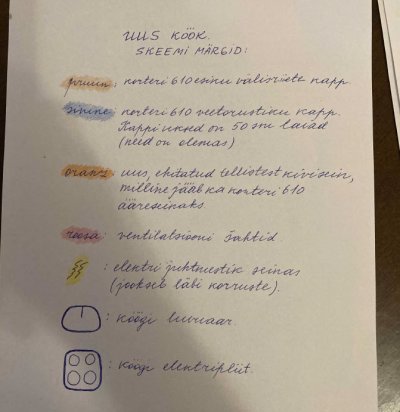 UUS KÖÖK.
SKEEMI MÄRGID:
pruun: korteri 610 esinu välisriiete kapp
sinine: korteri 610 veetorustiku kapp.
Kappi uksed on 50 sm laiad
(need on olemas)
oranž: uus, ehitatud tellistest kivisein,
milline jääb ka korteri 610
ääreseinaks.
roosa: ventilatsiooni šahtid
: elektri juhtmestik seinas
(jookseb läbi korruste).
: köögi kuivaar.
: köögi elektripliit.